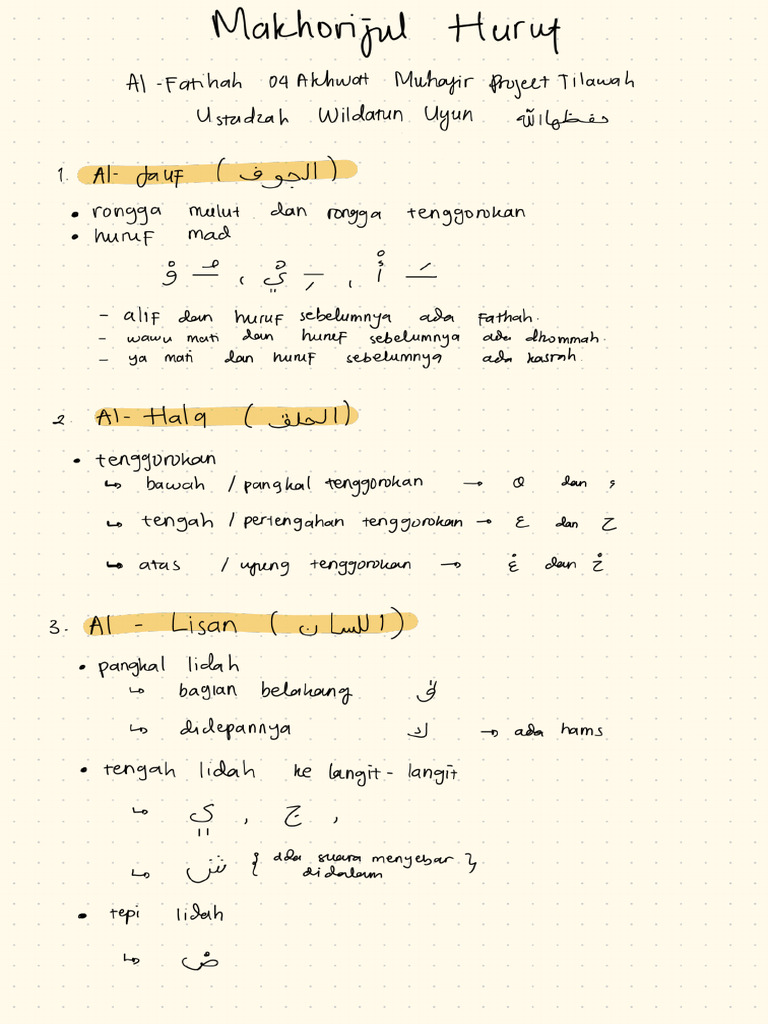 Makhorijul Huruf
Al-Fatihah 04 Akhwat Muhajir Project Tilawah
Ustadzah Wildatun Uyun حفظها الله
1. Al-Jauf (الجوف)
• rongga mulut dan rongga tenggorokan
• huruf mad
ـَ أْ ، ـِ يْ ، ـُ وْ
- alif dan huruf sebelumnya ada fathah.
- wawu mati dan huruf sebelumnya ada dhommah.
- ya mati dan huruf sebelumnya ada kasrah
2. Al-Halq (الحلق)
• tenggorokan
↳ bawah / pangkal tenggorokan → ه dan ء
↳ tengah / pertengahan tenggorokan → ع dan ح
↳ atas / ujung tenggorokan → غ dan خ
3. Al-Lisan (اللسان)
• pangkal lidah
↳ bagian belakang ق
↳ didepannya ك → ada hams
• tengah lidah ke langit-langit
↳ ي , ج ,
↳ ش { ada suara menyebar }
didalam
• tepi lidah
↳ ض